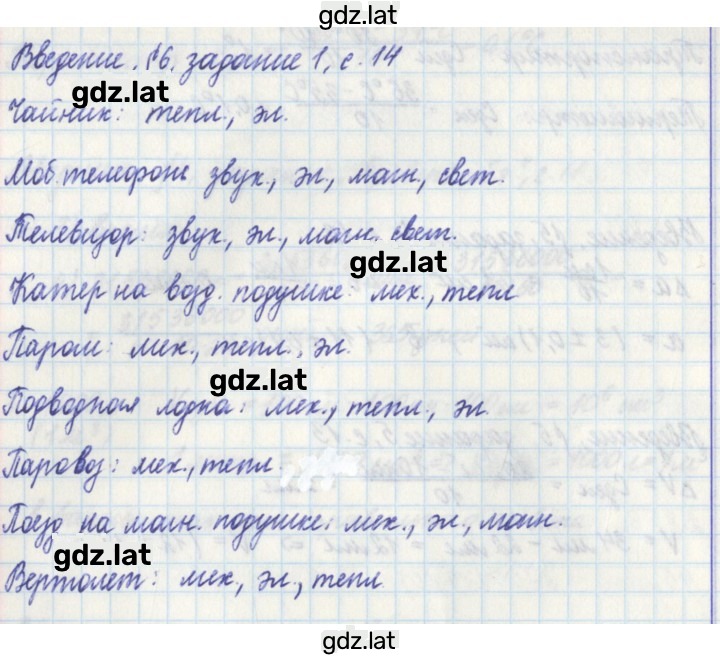 gdz.lat
Введение. §6. задание 1, с. 14
gdz.lat
Чайник: тепл., эл.
Моб. телефоне звук., эл., магн., свет.
Телевизор: звук, эл., магн. свет.
gdz.lat
Катер на возд. подушке: мех., тепл
Паром: мех., тепл., эл.
gdz.lat
Подводная лодка: мех., тепл., эл.
Паровоз: мех., тепл.
Поезд на магн. подушке: мех., эл., магн.
gdz.lat
Вертолет: мех, эл., тепл.
gdz.lat